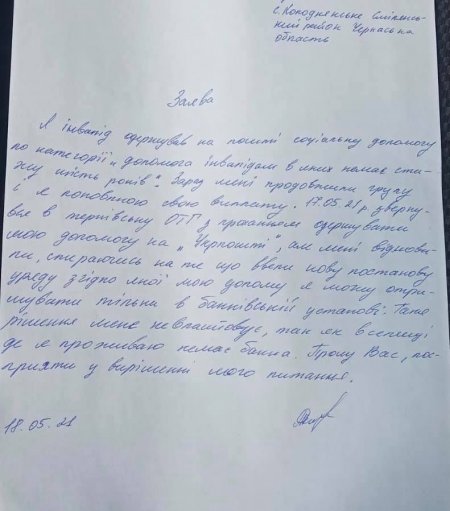 с. Колоднянське Смілянсь-
кий район Черкаська
область
Заява
Я інвалід одержував на пошті соціальну допомогу
по категорії „допомога інвалідам в яких немає ста-
жу шість років". Зараз мені продовжили групу
і я поновлюю свою виплату. 17.05 21 р. зверну-
вся в ОТГ з проханням одержувати
мою допомогу на „Укрпошті", але мені віднови-
ли, спираючись на те що ввели нову постанову
уряду згідно якої мою допомогу я можу отри-
мувати тільки в банківській установі. Таке
рішення мене не влаштовує, так як в селищі
де я проживаю немає банка. Прошу Вас, пос-
прияти у вирішенні мого питання.
18.05.21